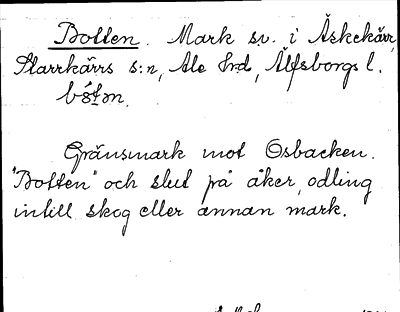 Botten. Mark sv. i Äskekärr,
Starrkärrs s:n, Ale hrd, Älfsborgs l.
Gränsmark mot Osbacken.
"Botten" och slut på åker, odling
intill skog eller annan mark.